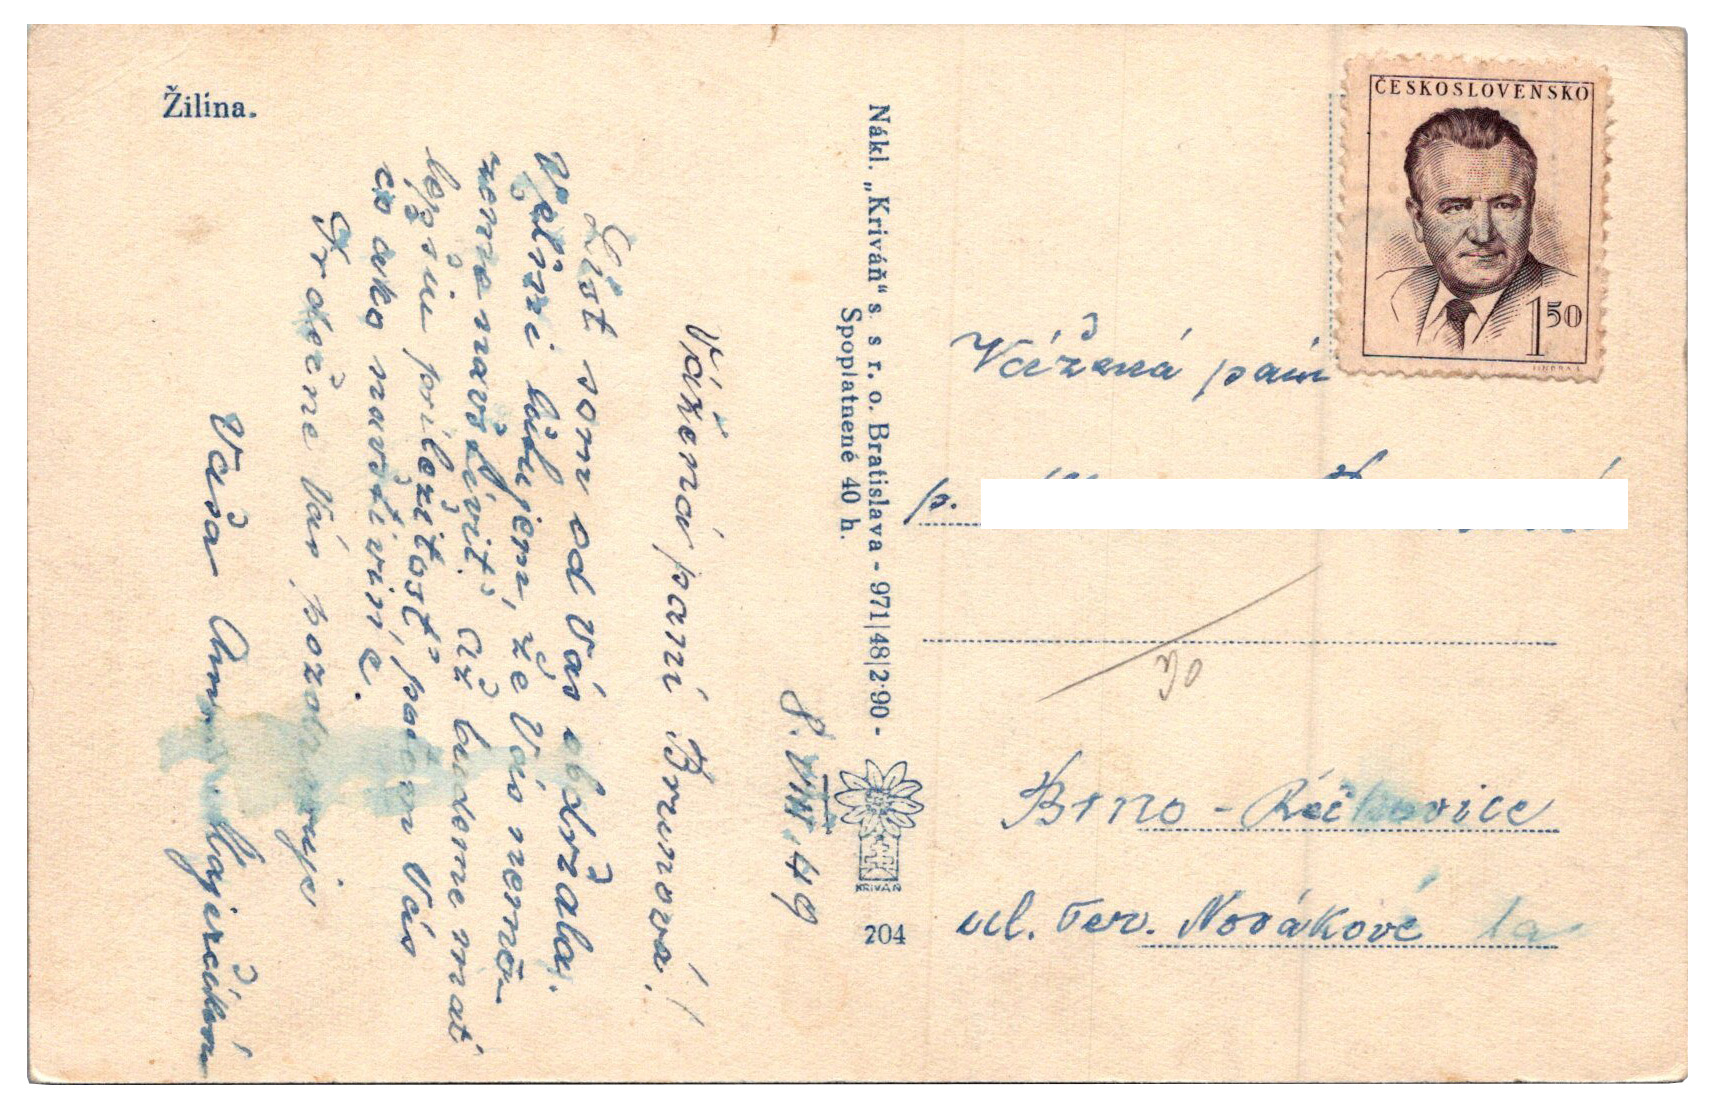 Žilina.
8. VIII. 49
Vážená paní Brunová!
List som od Vás obdržala.
Veľmi ľutujem, že Vás nemô-
žeme navštíviť. Až budeme mať
lepšiu príležitosť, potom Vás
co
navštívime.
Srdečne Vás pozdravuje
Vaša
Nákl. „Kriváň“ s. s r. o. Bratislava - 971|48|2·90 -
Spoplatnené 40 h.
KRIVÁŇ
204
ČESKOSLOVENSKO
1 50
Vážená paní
p.
Brno - Řečkovice
ul. Ter. Novákové 1a